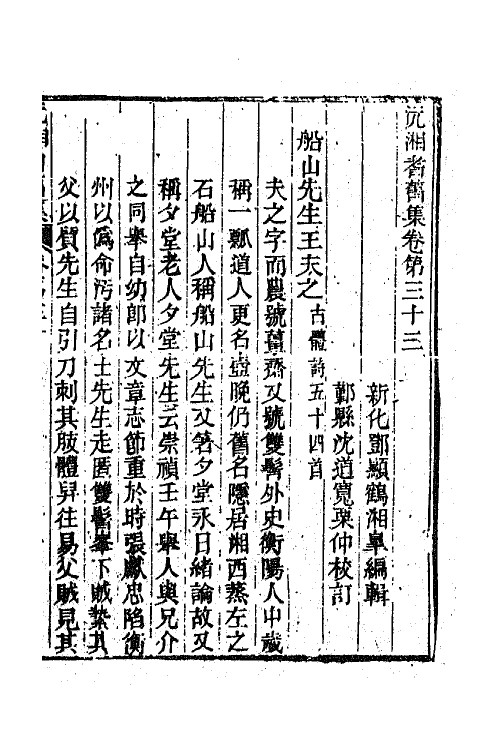 沅湘耆舊集卷第三十三
新化鄧顯鶴湘臯編輯
鄞縣沈道寬栗仲校訂
船山先生王夫之古體詩五十四首
夫之字而農號薑齋又號雙髻外史衡陽人中歲
稱一瓢道人更名壺晚仍舊名隱居湘西蒸左之
石船山人稱船山先生又著夕堂永日緒論故又
稱夕堂老人夕堂先生云崇禎壬午舉人與兄介
之同舉自幼卽以文章志節重於時張獻忠陷衡
州以僞命汚諸名士先生走匿雙髻峯下賊縶其
父以質先生自引刀刺其肢體舁往易父賊見其